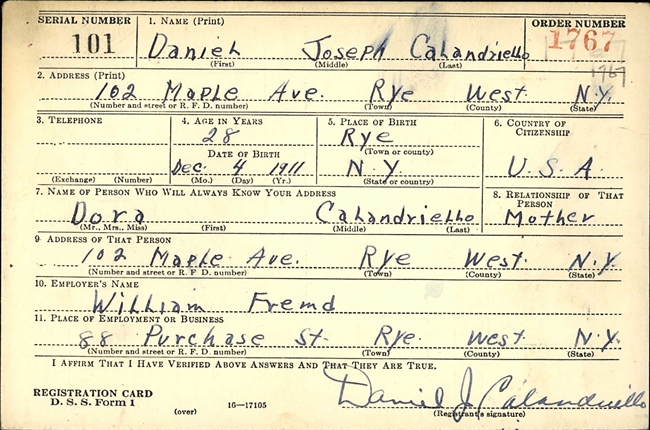 SERIAL NUMBER 1. NAME (Print) ORDER NUMBER
101 Daniel Joseph Calandriello 1767
(First) (Middle) (Last)
1767
2. ADDRESS (Print)
102 Maple Ave. Rye West N.Y.
(Number and street or R. F. D. number) (Town) (County) (State)
3. TELEPHONE 4. AGE IN YEARS 5. PLACE OF BIRTH 6. COUNTRY OF CITIZENSHIP
28 Rye
DATE OF BIRTH (Town or county)
Dec. 4 1911 N.Y. U.S.A.
(Exchange) (Number) (Mo.) (Day) (Yr.) (State or country)
7. NAME OF PERSON WHO WILL ALWAYS KNOW YOUR ADDRESS 8. RELATIONSHIP OF THAT PERSON
Dora Calandriello Mother
(Mr., Mrs., Miss) (First) (Middle) (Last)
9 ADDRESS OF THAT PERSON
102 Maple Ave. Rye West. N.Y.
(Number and street or R. F. D. number) (Town) (County) (State)
10. EMPLOYER'S NAME
William Fremd
11. PLACE OF EMPLOYMENT OR BUSINESS
88 Purchase St. Rye. West. N.Y.
(Number and street or R. F. D. number) (Town) (County) (State)
I AFFIRM THAT I HAVE VERIFIED ABOVE ANSWERS AND THAT THEY ARE TRUE.
REGISTRATION CARD
D. S. S. Form 1 (over) 16—17105 Daniel J Calandriello
(Registrant's signature)